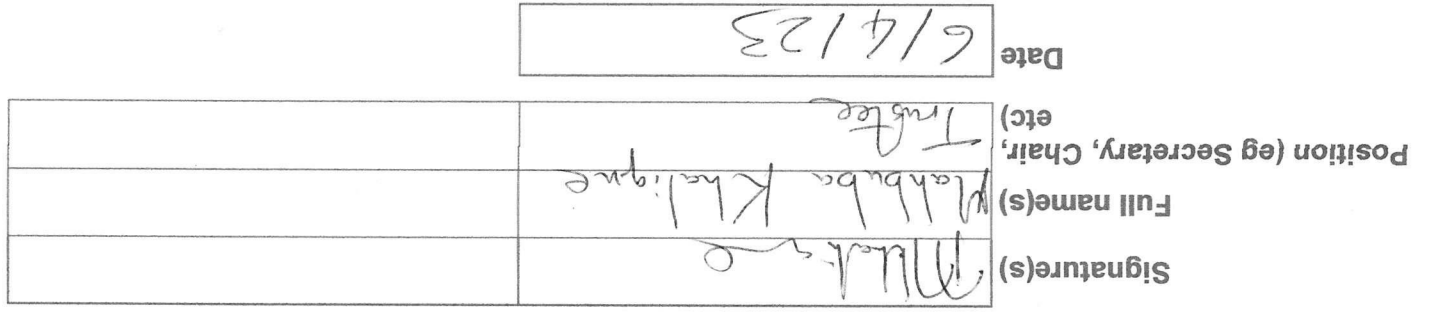 Signature(s) MKhalique
Full name(s) Mahbuba Khalique
Position (eg Secretary, Chair, Trustee
etc)
Date 6/4/23